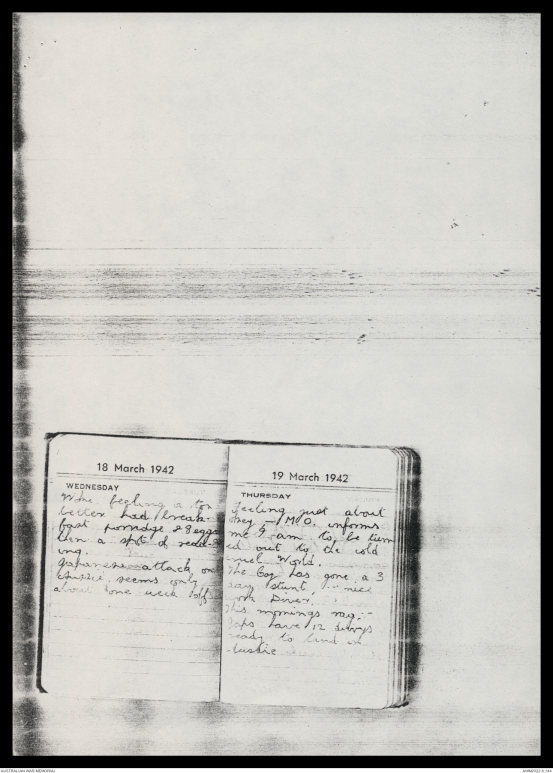 18 March 1942
WEDNESDAY
Woke feeling a ton
better had break-
fast porridge & 2 eggs
then a spot of read-
ing.
Japanese attack on
Aussie seems only
about one week off
19 March 1942
THURSDAY
Feeling just about
M.O. informs
me I am to be turn
ed out to the cold
cruel World.
The Coy has gone a 3
day stunt, nice
work Diver.
This mornings rag:-
Japs have 12 divvys
ready to land in
Aussie
AUSTRALIAN WAR MEMORIAL